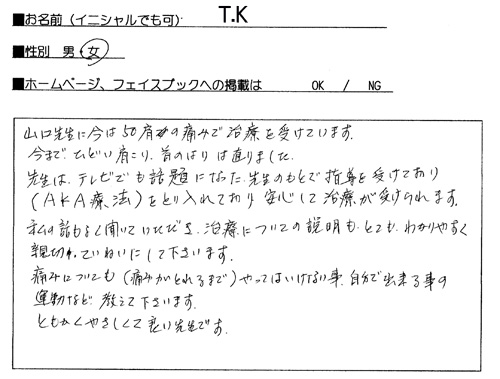 ■お名前（イニシャルでも可） T.K
■性別 男・女
■ホームページ、フェイスブックへの掲載は OK / NG
山口先生に今は50肩の痛みで治療を受けています。
今まで、ひどい肩こり、首のはりは直りました。
先生は、テレビでも話題になった先生のもとで指導を受けており
（AKA療法）をとり入れており安心して治療が受けられます。
私の話もよく聞いていただき、治療についての説明も、とても、わかりやすく
親切、ていねいにして下さいます。
痛みについても（痛みがとれるまで）やってはいけない事、自分で出来る事の
運動など教えて下さいます。
ともかくやさしくて良い先生です。